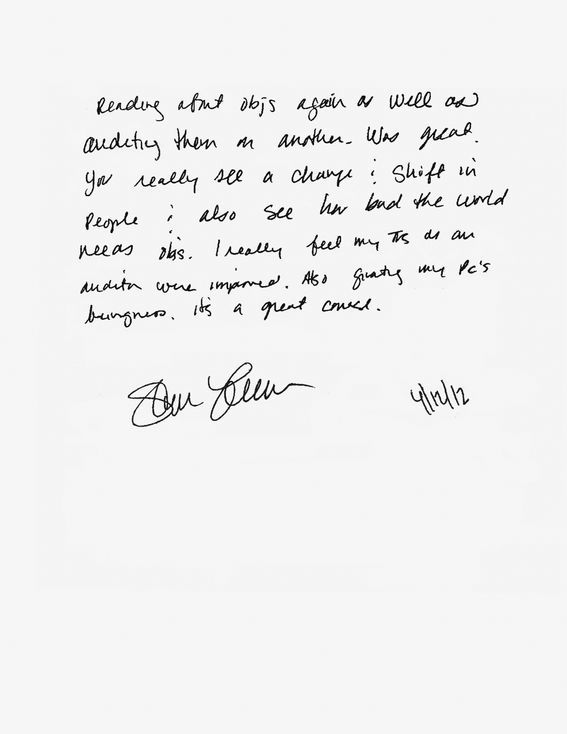 Reading about objs again as well as
auditing them on another. Was great.
You really see a change & shift in
People & also see how bad the world
needs objs. I really feel my TRs as an
auditor were improved. Also granting my Pc's
beingness. it's a great course.
4/12/12